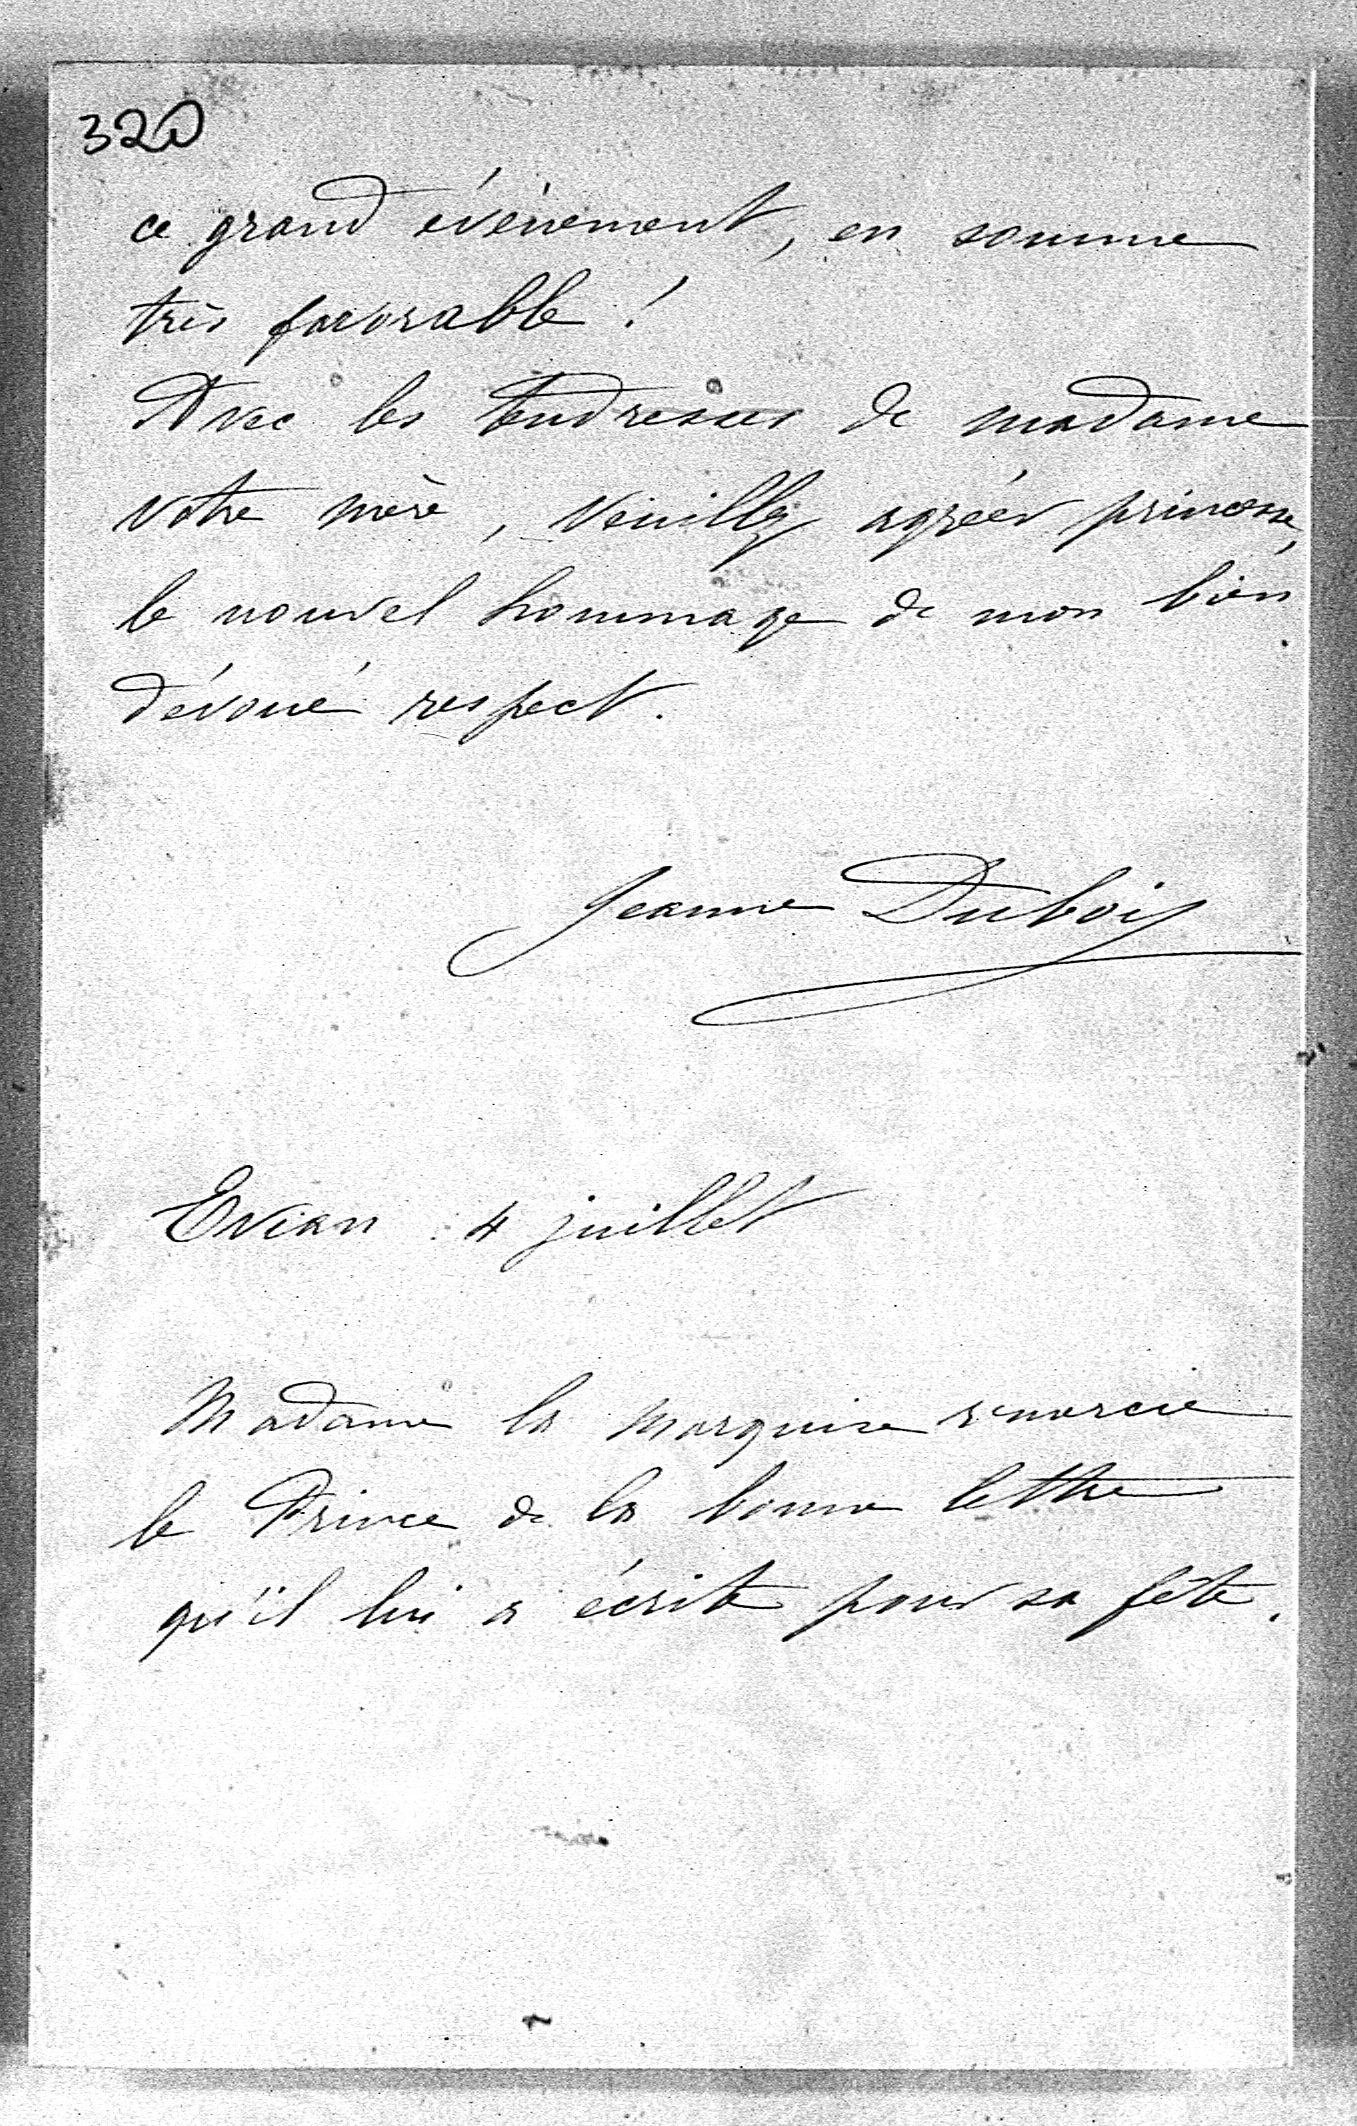 320
ce grand évènement, en somme
très favorable !
Avec les tendresses de madame
votre mère, veuillez agréer princesse,
le nouvel hommage de mon bien
dévoué respect.
Jeanne Dubois
Evian 4 juillet
Madame la marquise remercie
le Prince de la bonne lettre
qu'il lui a écrite pour sa fête.